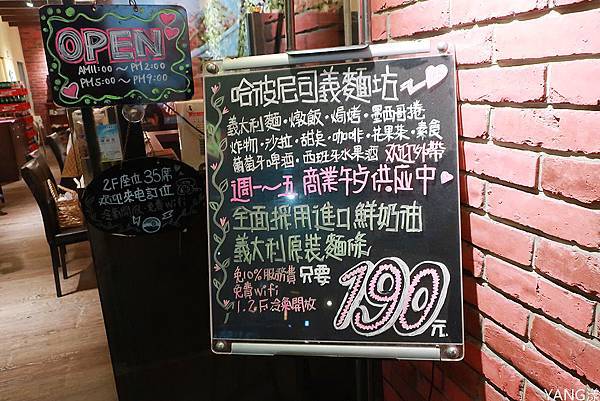 OPEN
AM11:00～PM2:00
PM5:00～PM9:00
2F座位35席
歡迎來電訂位
哈彼尼司義麵坊
義大利麵・燉飯・焗烤・墨西哥捲
炸物・沙拉・甜臭・咖啡・花果茶・素食
葡萄牙啤酒・西班牙水果酒 欢迎外帶
週一～五 商業午夕供应中
全面採用進口鮮奶油
義大利原裝麵條
免10%服務費 只要 190元
免費wifi
1.2F冷氣開放
YANG漾